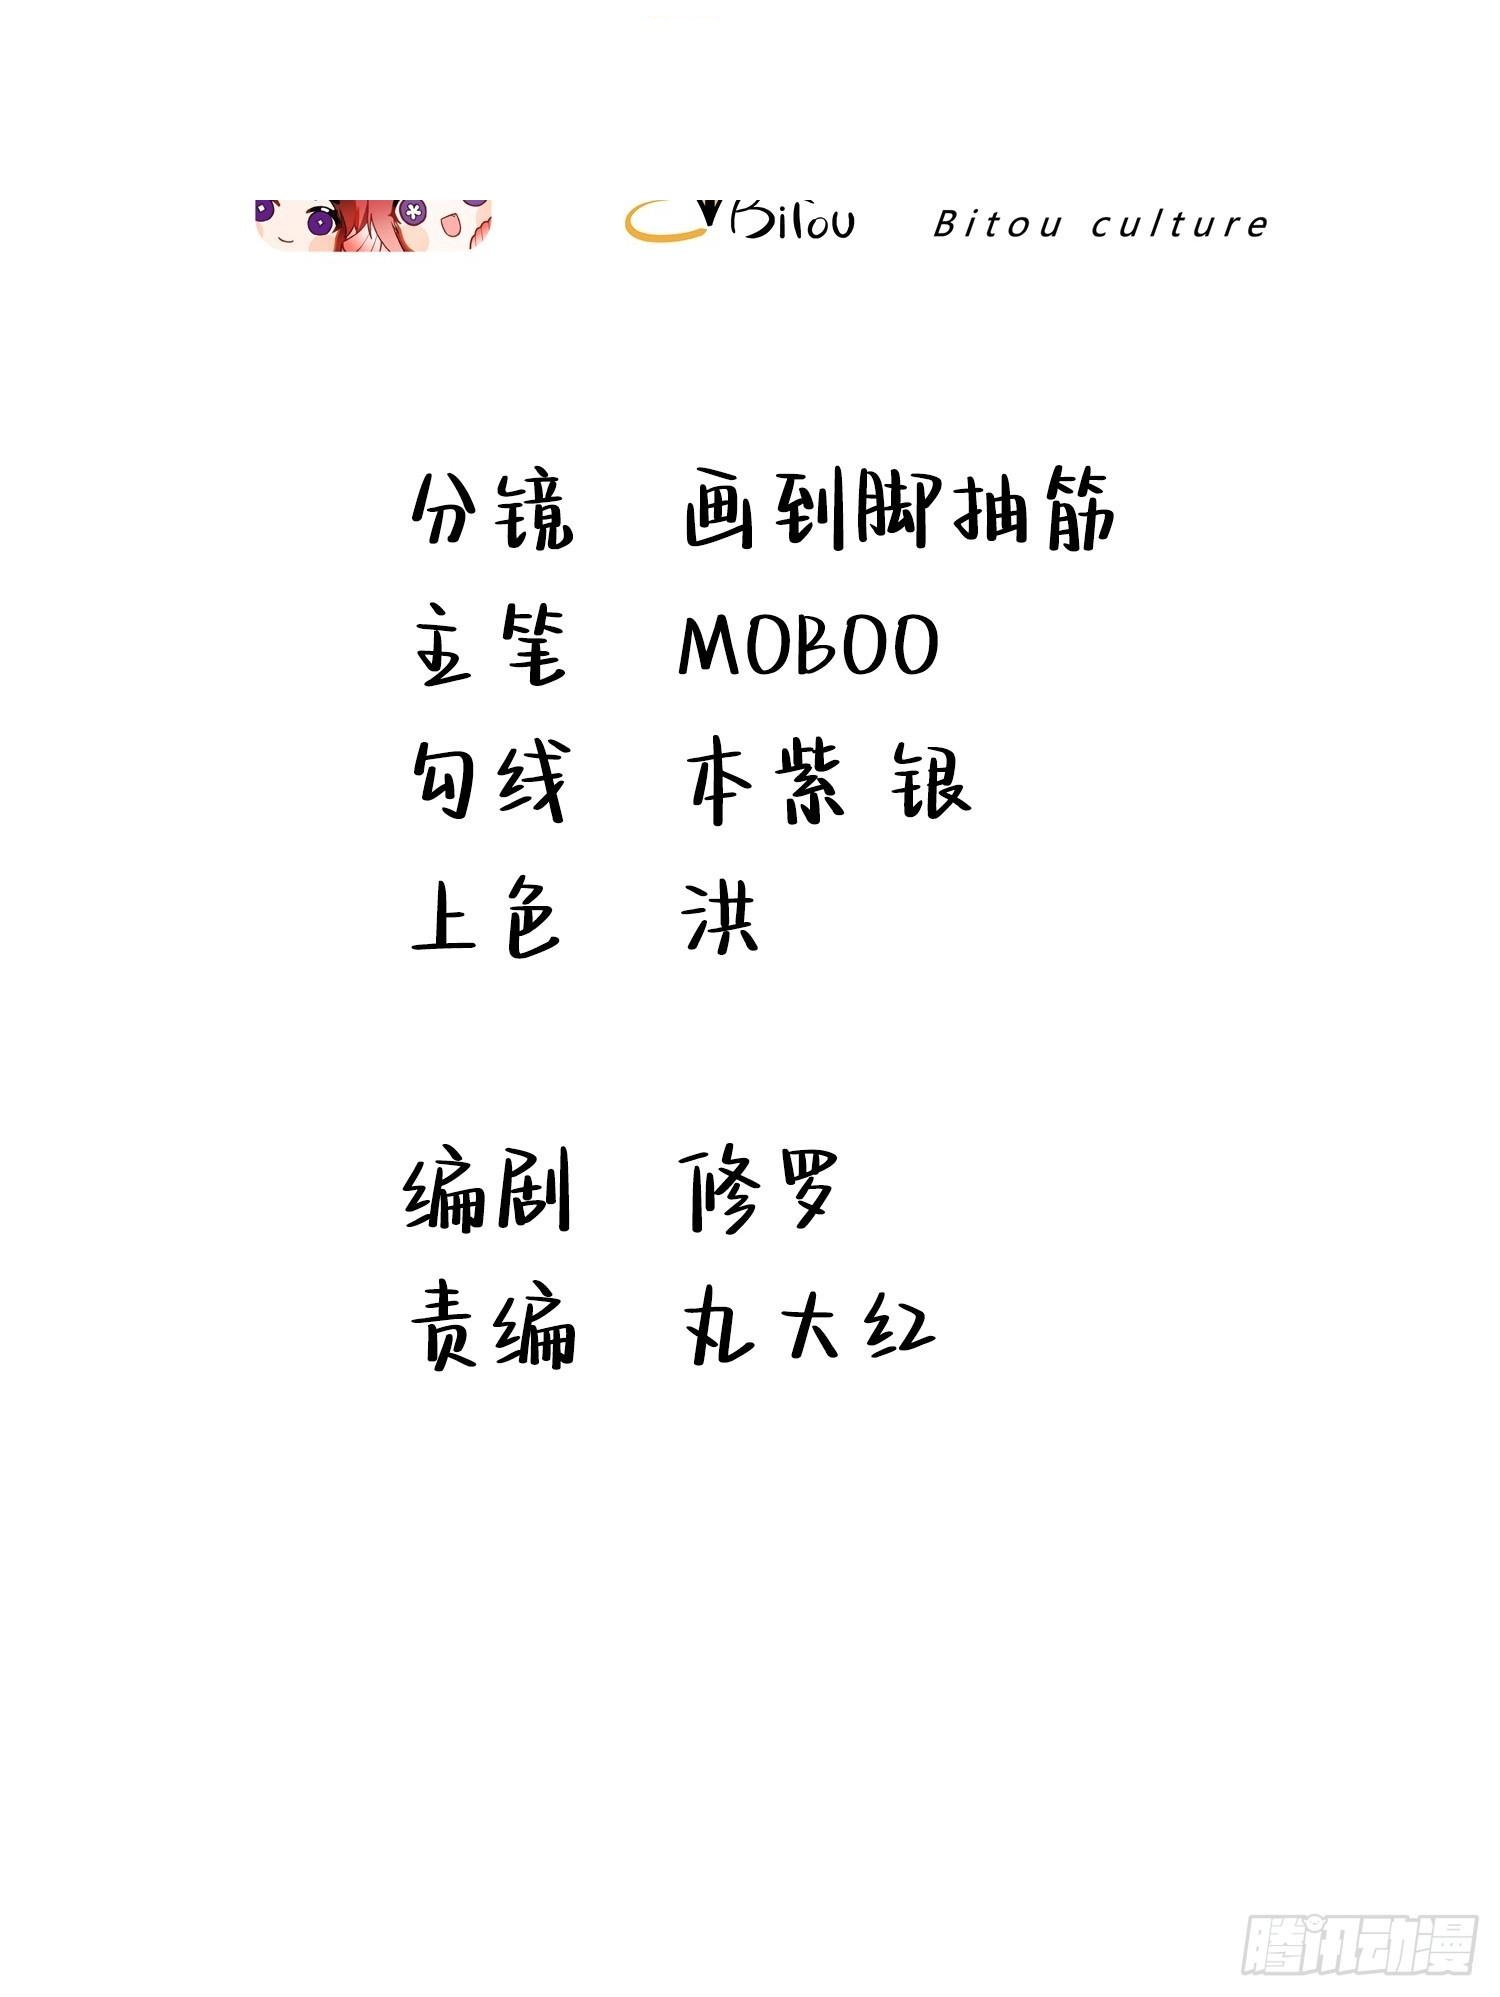 Bitou Bitou culture
分镜 画到脚抽筋
主笔 MOBOO
勾线 本紫 银
上色 洪
编剧 修罗
责编 丸大红
腾讯动漫